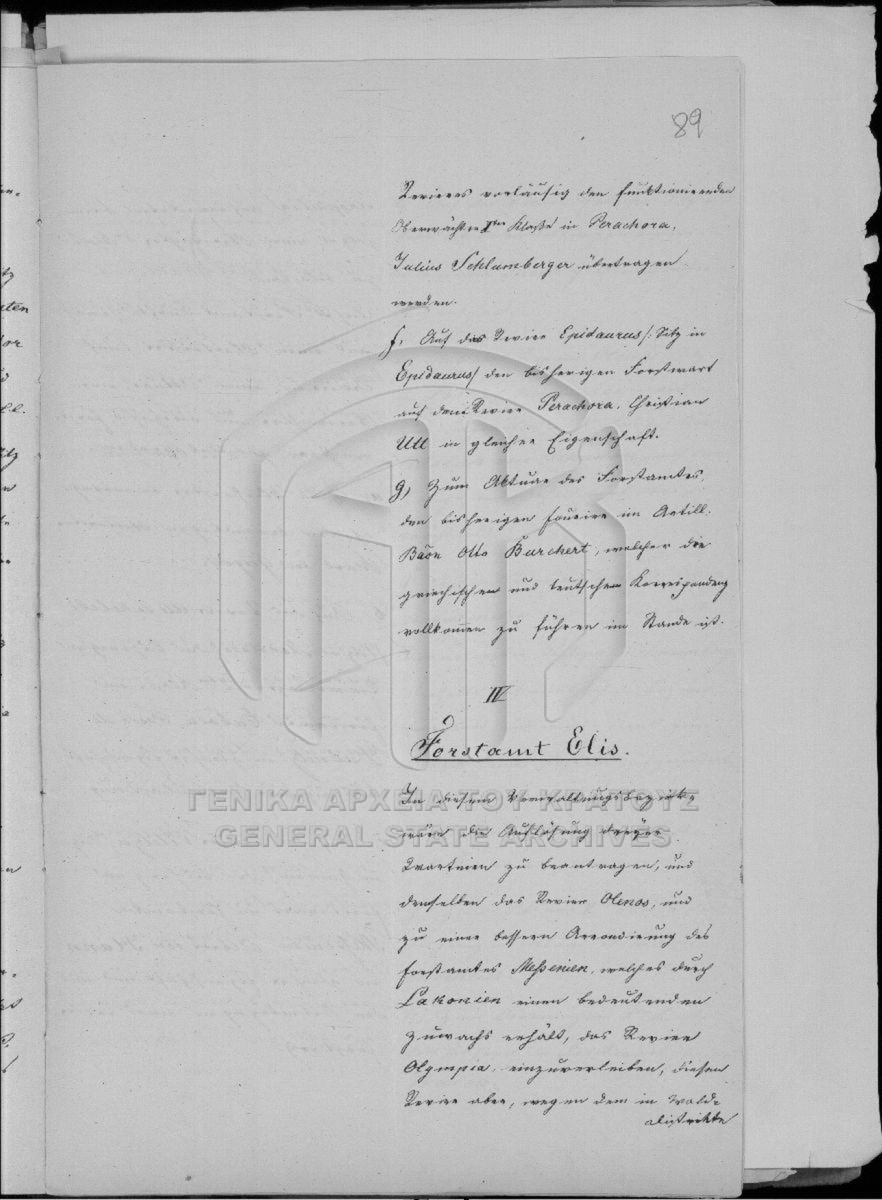 89
Revieres vorläufig den funktionirenden
Oberwächter Iter Klaße in Perachora,
Julius Schlumberger übertragen
werden.
f, Auf das Revier Epidaurus /: Sitz in
Epidaurus / den bisherigen Forstwart
auf dem Revier Perachora, Christian
Utt in gleicher Eigenschaft.
g, Zum Aktuar des Forstamtes,
den bisherigen Fourier im Artill.
Baon Otto Burchert, welcher die
griechischen und teutschen Korrespondenz
vollkommen zu führen im Stande ist.
IV
Forstamt Elis.
In diesem Verwaltungsbezirke
wäre die Auflösung
zu beantragen, und
demselben das Revier Olenos, und
zu einer bessern Arrondierung des
Forstamtes Meßenien, welches durch
Lakonien einen bedeutenden
Zuwachs erhält, das Revier
Olympia einzuverleiben, diesem
Revier aber, wegen dem in Wald-
distrikte
ΓΕΝΙΚΑ ΑΡΧΕΙΑ ΤΟΥ ΚΡΑΤΟΥΣ
GENERAL STATE ARCHIVES